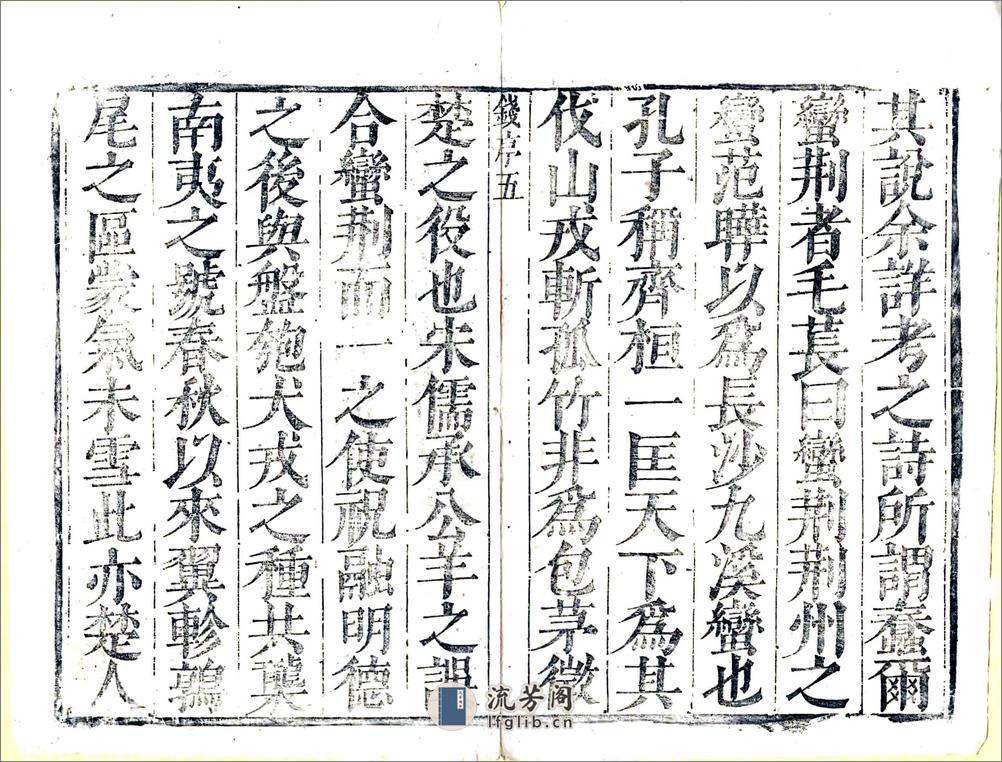 其說余詳考之詩所謂蠢爾
蠻荆者毛萇曰蠻荆荆州之
蠻范曄以爲長沙九溪蠻也
孔子稱齊桓一匡天下爲其
伐山戎斬孤竹非爲包茅徵
錢序五
楚之役也宋儒承公羊之誤
合蠻荆而一之使祝融明德
之後與盤匏犬戎之種共龔
南夷之號春秋以來翼軫鶉
尾之區蒙氣未雪此亦楚人
流芳阁
lfglib.cn